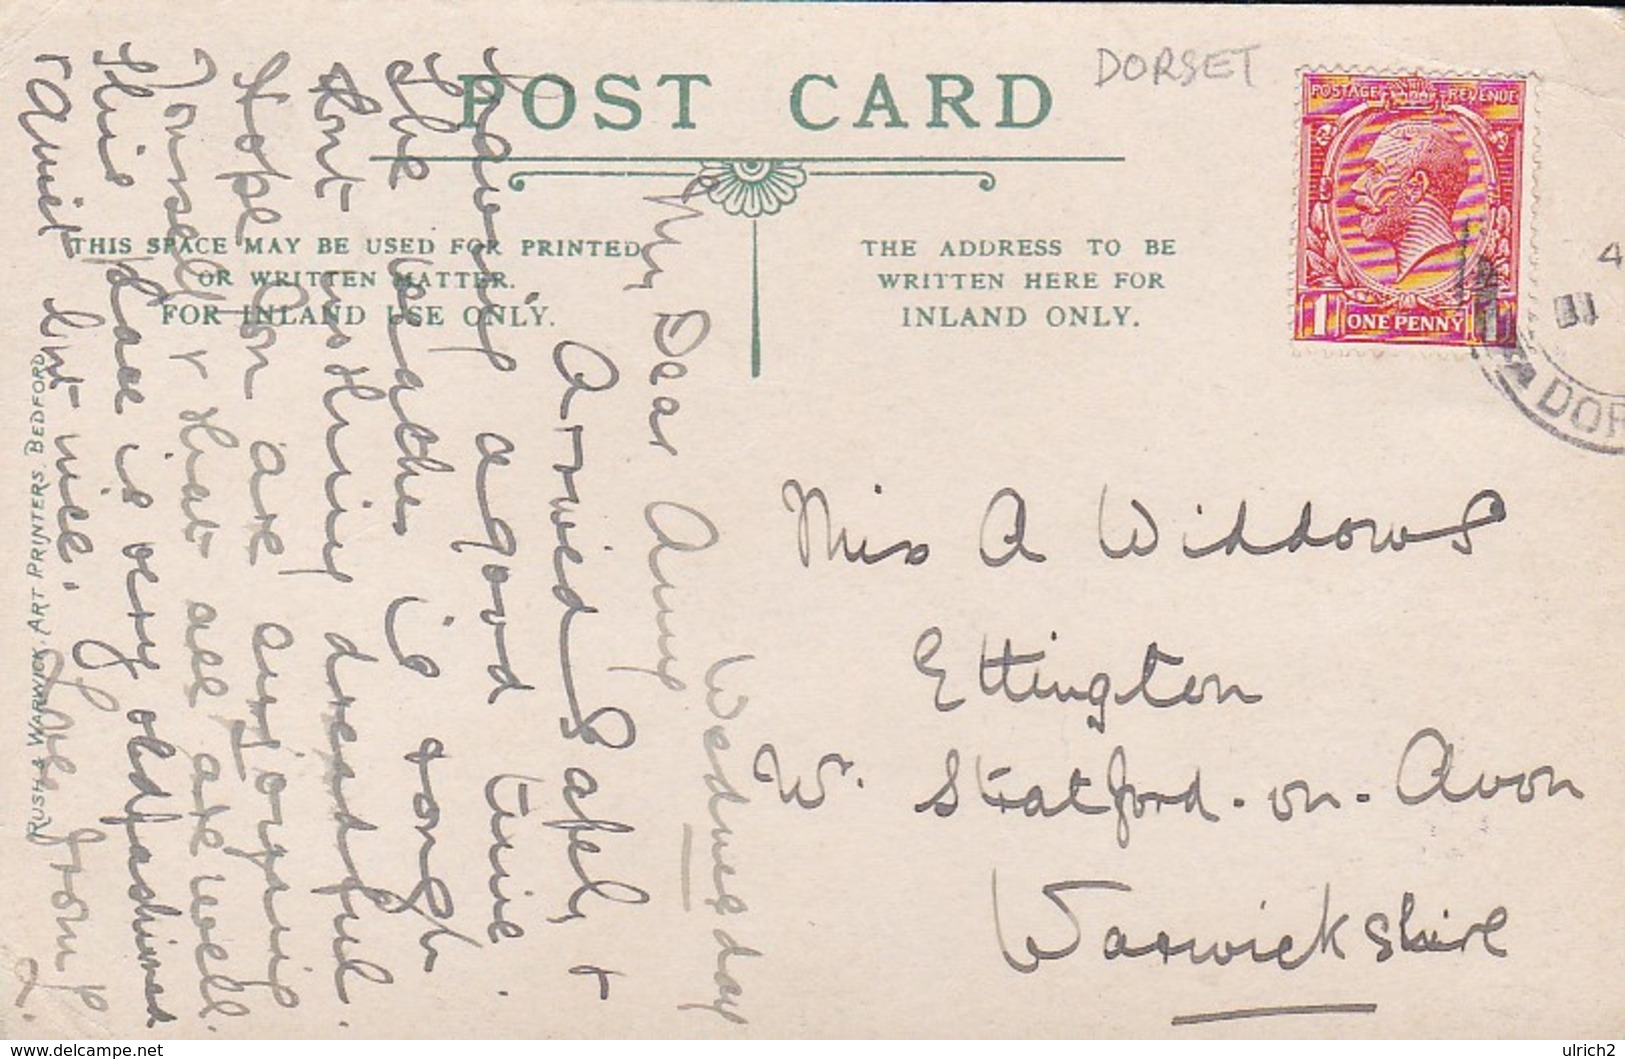 DORSET
POST CARD
POSTAGE REVENUE
1 ONE PENNY 1
4
DOR
THIS SPACE MAY BE USED FOR PRINTED
OR WRITTEN MATTER.
FOR INLAND USE ONLY.
THE ADDRESS TO BE
WRITTEN HERE FOR
INLAND ONLY.
Wednesday
My Dear Anny
Arrived Safely +
having a good time.
The weather is rough
but nothing dreadful.
Hope you are enjoying
Yourself + that all are well.
This place is very oldfashioned
quiet but nice.
Miss A Widdows
Ettington
Nr. Stratford-on-Avon
Warwickshire
RUSH & WARWICK, ART PRINTERS, BEDFORD
www.delcampe.net
ulrich2